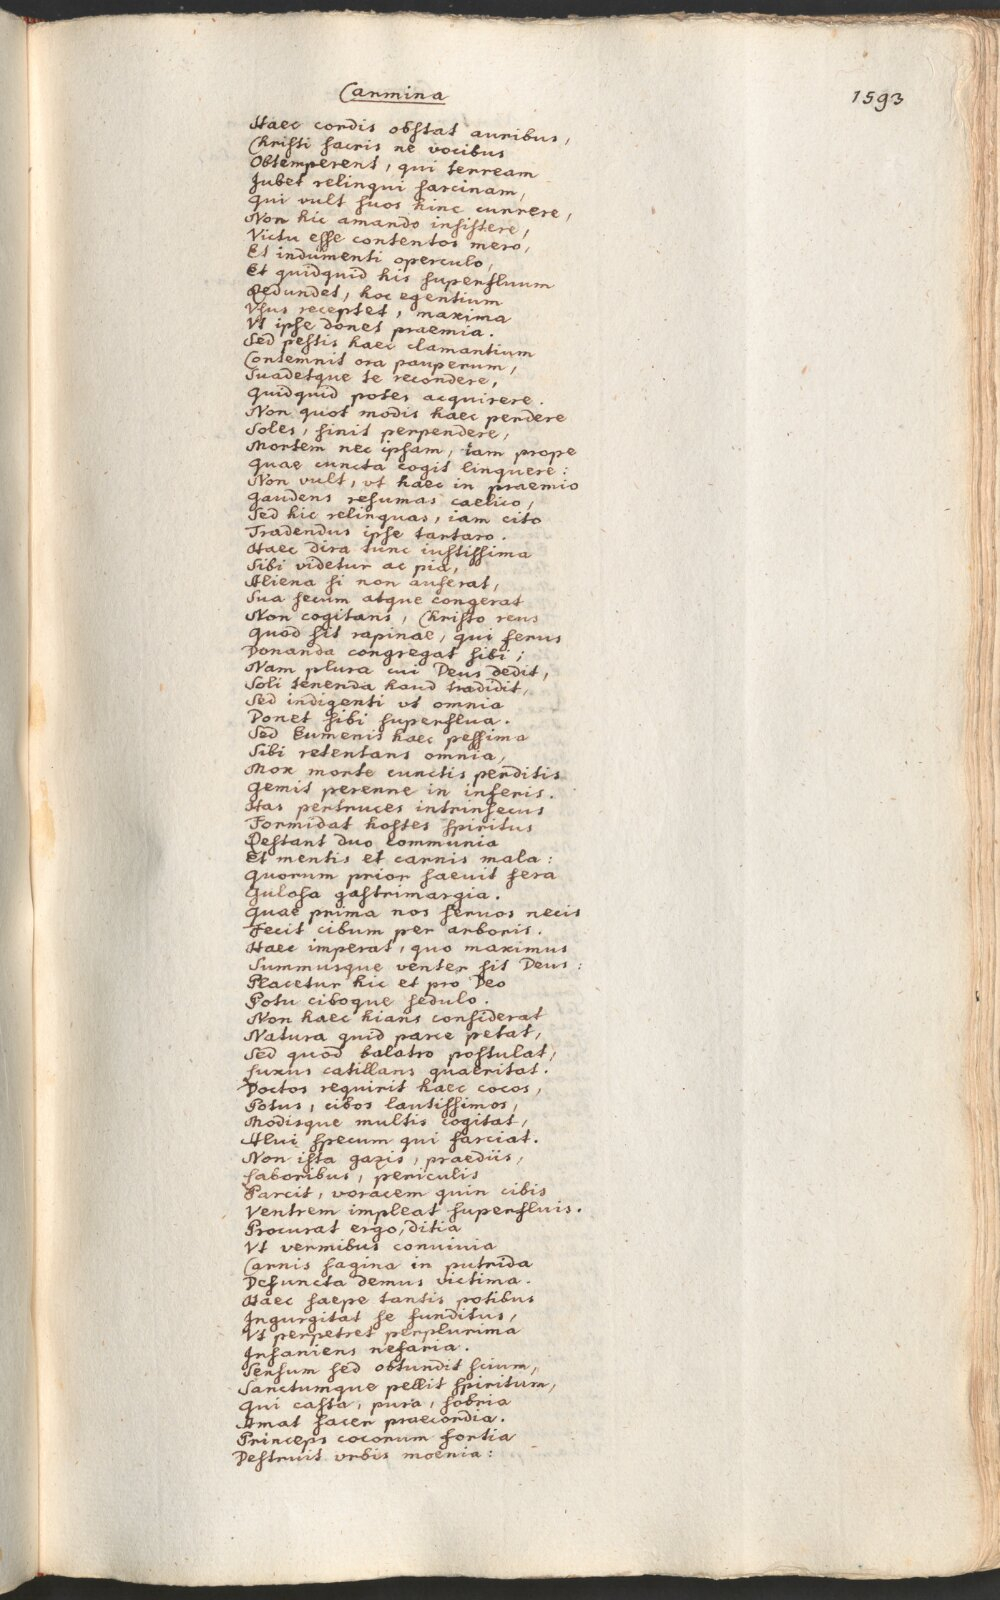 Carmina
1593
Haec cordis obstat auribus,
Christi sacris ne vocibus
Obtemperent, qui terream
Iubet relinqui sarcinam,
Qui vult suos hinc currere,
Non hic amando insistere,
Victu esse contentos mero,
Et indumenti operculo,
Et quidquid his superfluum
Redundet, hoc egentium
Usus receptet, maxima
Ut ipse donet praemia.
Sed pestis haec clamantium
Contemnit ora pauperum,
Suadetque te recondere,
Quidquid potes acquirere.
Non quot modis haec perdere
Soles, sinit perpendere,
Mortem nec ipsam, iam prope
Quae cuncta cogit linquere:
Non vult, vt haec in praemio
Gaudens resumas caelico,
Sed hic relinquas, iam cito
Tradendus ipse tartaro.
Haec dira tunc iustissima
Sibi videtur ac pia,
Aliena si non auferat,
Sua secum atque congerat
Non cogitans, Christo reus
Quod sit rapinae, qui ferus
Donanda congregat sibi;
Nam plura cui Deus dedit,
Soli tenenda haud tradidit,
Sed indigenti vt omnia
Donet sibi superflua.
Sed Eumenis haec pessima
Sibi retentans omnia,
Mox morte cunctis perditis
Gemit perenne in inferis.
Has pertruces intrinsecus
Formidat hostes spiritus
Restant duo communia
Et mentis et carnis mala:
Quorum prior saeuit fera
Gulosa gastrimargia.
Quae prima nos seruos necis
Fecit cibum per arboris.
Haec imperat, quo maximus
Summusque venter sit Deus:
Placetur hic et pro Deo
Potu ciboque sedulo.
Non haec hians considerat
Natura quid parce petat,
Sed quod balatro postulat,
Luxus catillans quaeritat.
Doctos requirit haec cocos,
Potus, cibos lautissimos,
Modisque multis cogitat,
Alui specum qui farciat.
Non ista gazis, praediis,
Laboribus, periculis
Parcit, voracem quin cibis
Ventrem impleat superfluis.
Procurat ergo, ditia
Ut vermibus conuiuia
Carnis sagina in putrida
Defuncta demus victima.
Haec saepe tantis potibus
Ingurgitat se funditus,
Ut perpetret perplurima
Insaniens nefaria.
Sensum sed obtundit scium,
Sanctumque pellit spiritum,
Qui casta, pura, sobria
Amat sacer praecordia.
Princeps cocorum fortia
Destruit vrbis moenia: